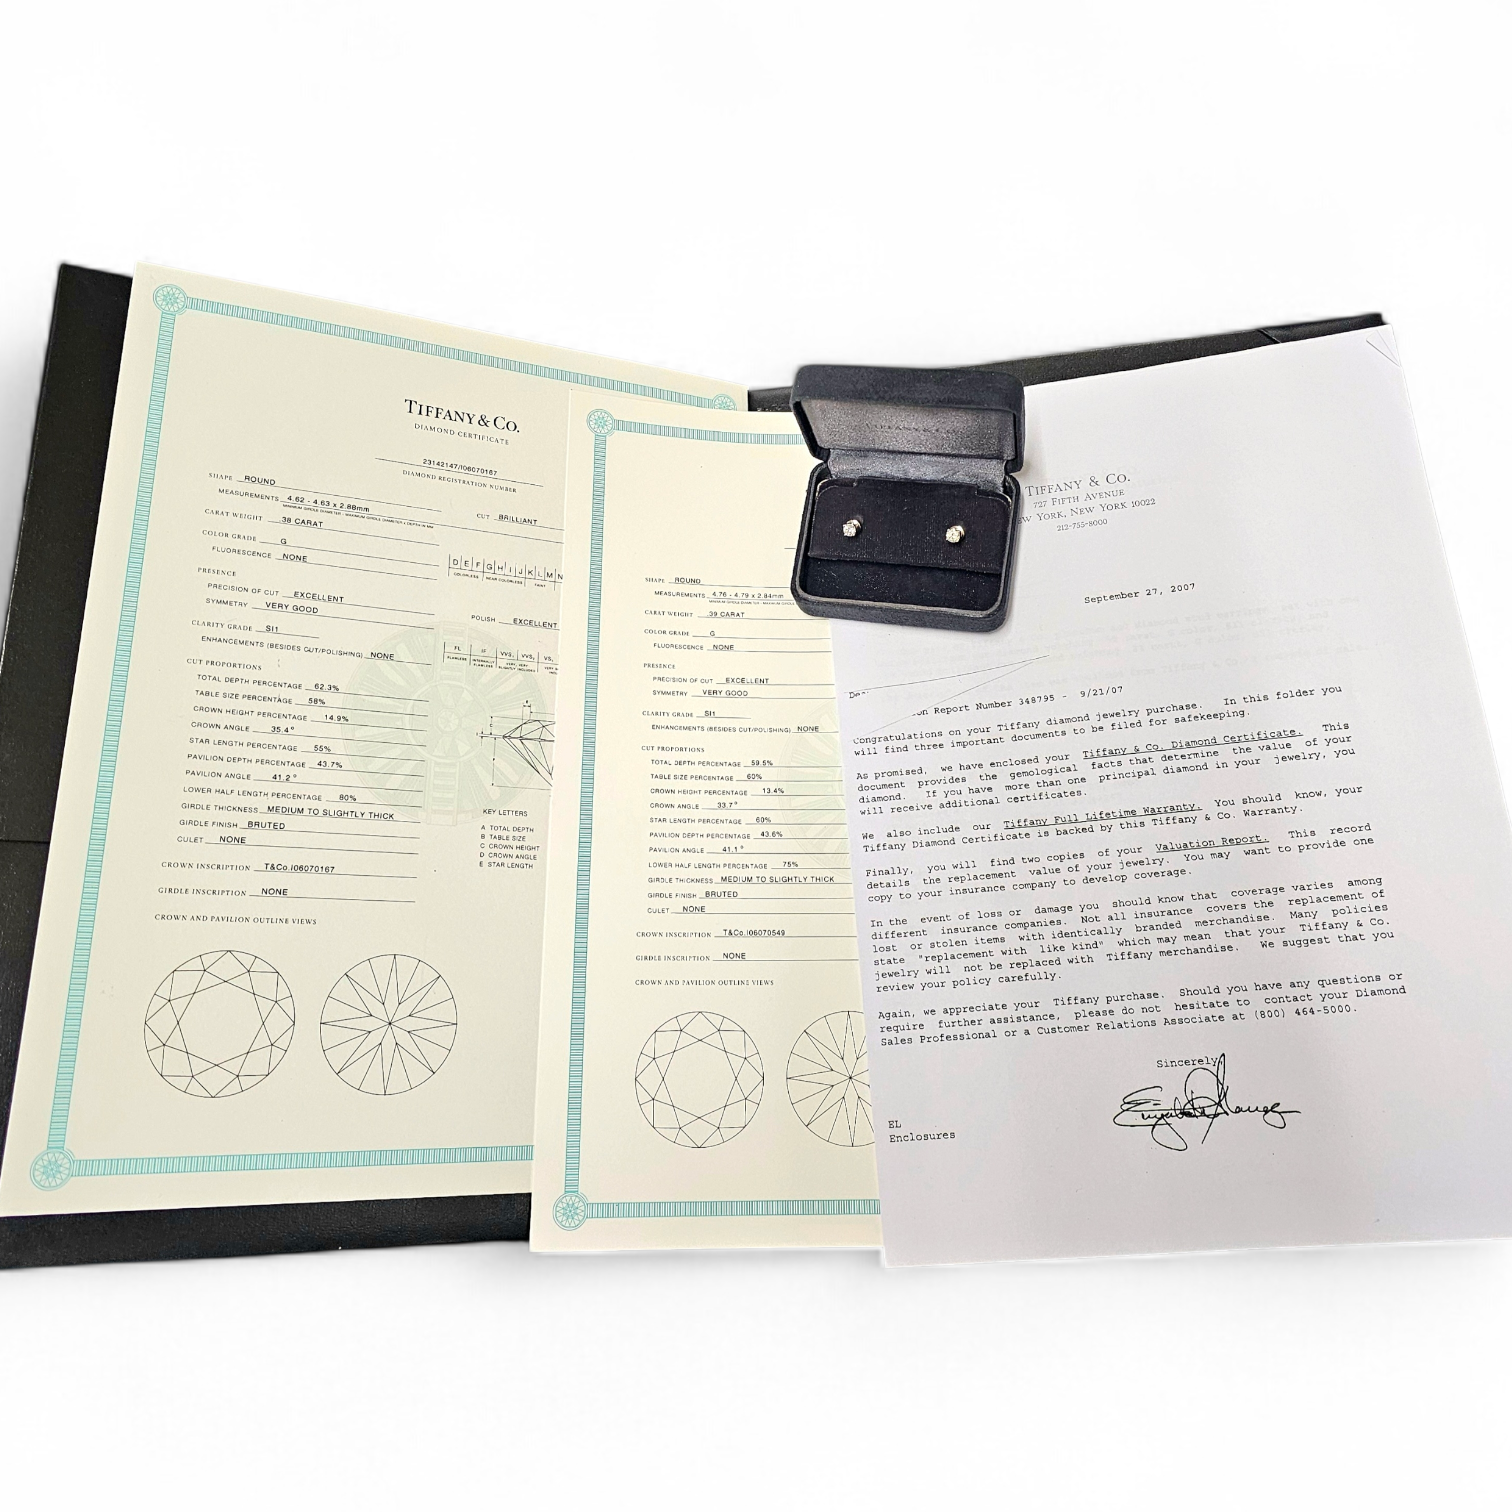 TIFFANY & CO.
DIAMOND CERTIFICATE
23142147/I06070167
DIAMOND REGISTRATION NUMBER
SHAPE ROUND
MEASUREMENTS 4.62 - 4.63 x 2.88mm
MINIMUM GIRDLE DIAMETER - MAXIMUM GIRDLE DIAMETER x DEPTH IN MM
CUT BRILLIANT
CARAT WEIGHT .38 CARAT
COLOR GRADE G
FLUORESCENCE NONE
D E F G H I J K L M N
COLORLESS NEAR COLORLESS FAINT
PRESENCE
PRECISION OF CUT EXCELLENT
SYMMETRY VERY GOOD
POLISH EXCELLENT
CLARITY GRADE SI1
ENHANCEMENTS (BESIDES CUT/POLISHING) NONE
FL IF VVS1 VVS2 VS1
FLAWLESS INTERNALLY FLAWLESS VERY, VERY SLIGHTLY INCLUDED
CUT PROPORTIONS
TOTAL DEPTH PERCENTAGE 62.3%
TABLE SIZE PERCENTAGE 58%
CROWN HEIGHT PERCENTAGE 14.9%
CROWN ANGLE 35.4°
STAR LENGTH PERCENTAGE 55%
PAVILION DEPTH PERCENTAGE 43.7%
PAVILION ANGLE 41.2°
LOWER HALF LENGTH PERCENTAGE 80%
GIRDLE THICKNESS MEDIUM TO SLIGHTLY THICK
GIRDLE FINISH BRUTED
CULET NONE
KEY LETTERS
A TOTAL DEPTH
B TABLE SIZE
C CROWN HEIGHT
D CROWN ANGLE
E STAR LENGTH
CROWN INSCRIPTION T&Co.I06070167
GIRDLE INSCRIPTION NONE
CROWN AND PAVILION OUTLINE VIEWS
SHAPE ROUND
MEASUREMENTS 4.76 - 4.79 x 2.84mm
CARAT WEIGHT .39 CARAT
COLOR GRADE G
FLUORESCENCE NONE
PRESENCE
PRECISION OF CUT EXCELLENT
SYMMETRY VERY GOOD
CLARITY GRADE SI1
ENHANCEMENTS (BESIDES CUT/POLISHING) NONE
CUT PROPORTIONS
TOTAL DEPTH PERCENTAGE 59.5%
TABLE SIZE PERCENTAGE 60%
CROWN HEIGHT PERCENTAGE 13.4%
CROWN ANGLE 33.7°
STAR LENGTH PERCENTAGE 60%
PAVILION DEPTH PERCENTAGE 43.6%
PAVILION ANGLE 41.1°
LOWER HALF LENGTH PERCENTAGE 75%
GIRDLE THICKNESS MEDIUM TO SLIGHTLY THICK
GIRDLE FINISH BRUTED
CULET NONE
CROWN INSCRIPTION T&Co.I06070549
GIRDLE INSCRIPTION NONE
CROWN AND PAVILION OUTLINE VIEWS
TIFFANY & CO.
727 FIFTH AVENUE
EW YORK, NEW YORK 10022
212-755-8000
September 27, 2007
on Report Number 348795 - 9/21/07
Congratulations on your Tiffany diamond jewelry purchase. In this folder you
will find three important documents to be filed for safekeeping.
As promised, we have enclosed your Tiffany & Co. Diamond Certificate. This
document provides the gemological facts that determine the value of your
diamond. If you have more than one principal diamond in your jewelry, you
will receive additional certificates.
We also include our Tiffany Full Lifetime Warranty. You should know, your
Tiffany Diamond Certificate is backed by this Tiffany & Co. Warranty.
Finally, you will find two copies of your Valuation Report. This record
details the replacement value of your jewelry. You may want to provide one
copy to your insurance company to develop coverage.
In the event of loss or damage you should know that coverage varies among
different insurance companies. Not all insurance covers the replacement of
lost or stolen items with identically branded merchandise. Many policies
state "replacement with like kind" which may mean that your Tiffany & Co.
jewelry will not be replaced with Tiffany merchandise. We suggest that you
review your policy carefully.
Again, we appreciate your Tiffany purchase. Should you have any questions or
require further assistance, please do not hesitate to contact your Diamond
Sales Professional or a Customer Relations Associate at (800) 464-5000.
Sincerely,
EL
Enclosures